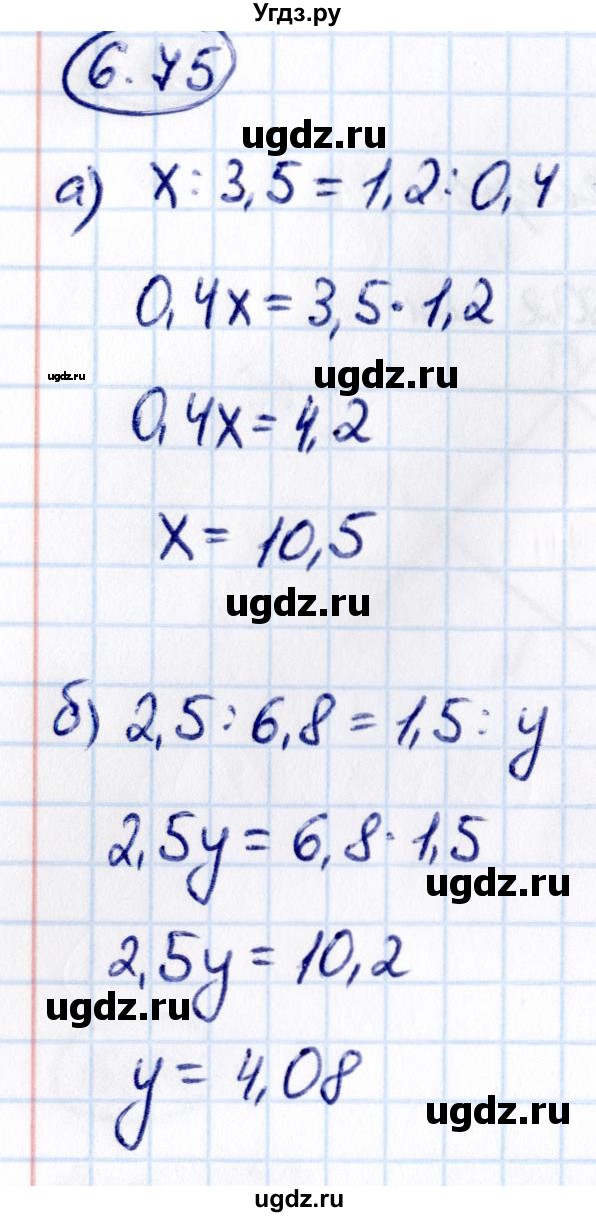 Угдз.ру
6.75
ugdz.ru
а) x : 3,5 = 1,2 : 0,4
0,4x = 3,5 · 1,2
ugdz.ru
ugdz.ru
0,4x = 4,2
x = 10,5
ugdz.ru
б) 2,5 : 6,8 = 1,5 : y
2,5y = 6,8 · 1,5
ugdz.ru
2,5y = 10,2
ugdz.ru
y = 4,08
ugdz.ru
ugdz.ru